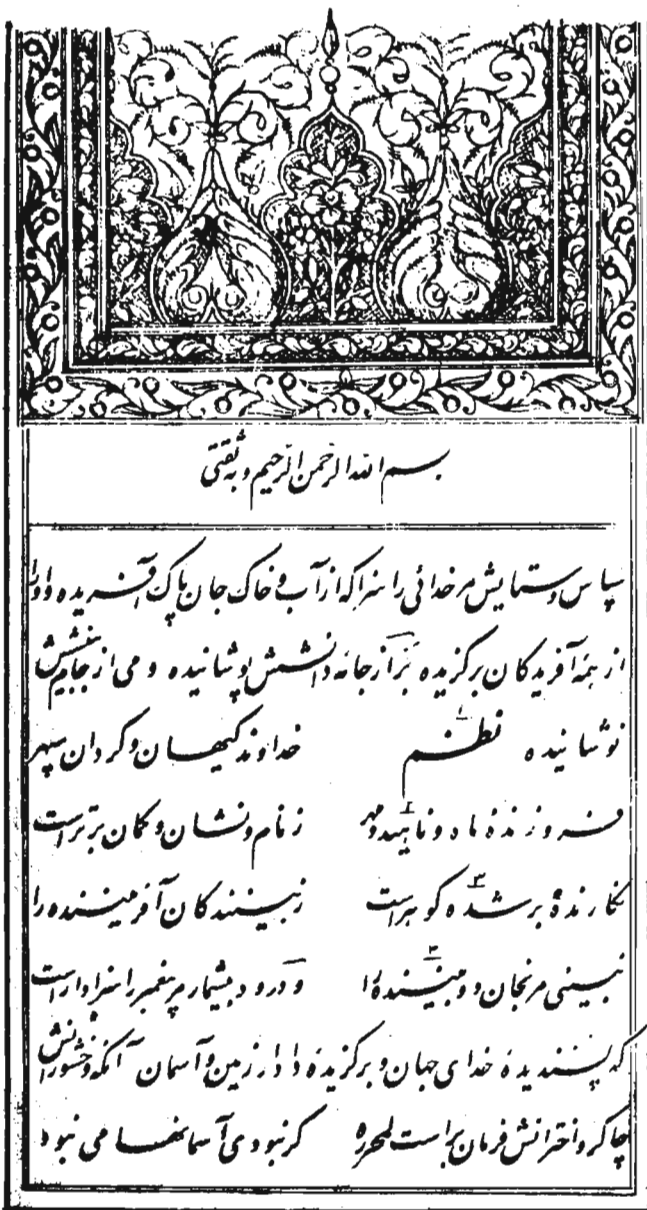 بسم الله الرحمن الرحیم و به ثقتی
سپاس و ستایش مر خدائی را سزا که از آب و خاک جان پاک آفریده و او را
از همهٔ آفریدکان برکزیده براز جانهٔ دانشش پوشانیده و می از جام بینشش
نوشانیده نظم ۱ خداوند کیهان و کردان سپهر
فروزندهٔ ماه و ناهید و مهر ۲ ز نام و نشان و کمان برتر است
نکارندهٔ بر شده کوهر است ۳ ز بینندکان آفریننده را
نبینی مرنجان دو بیننده را ۴ و درود بیشمار مر پیغمبر را سزاوار است
که پسندیدهٔ خدای جهان و برکزیدهٔ دادار زمین و آسمان آنکه وخشورانش
چاکر و اخترانش فرمان بر است لمحرره کر نبودی آسمانها می نبود